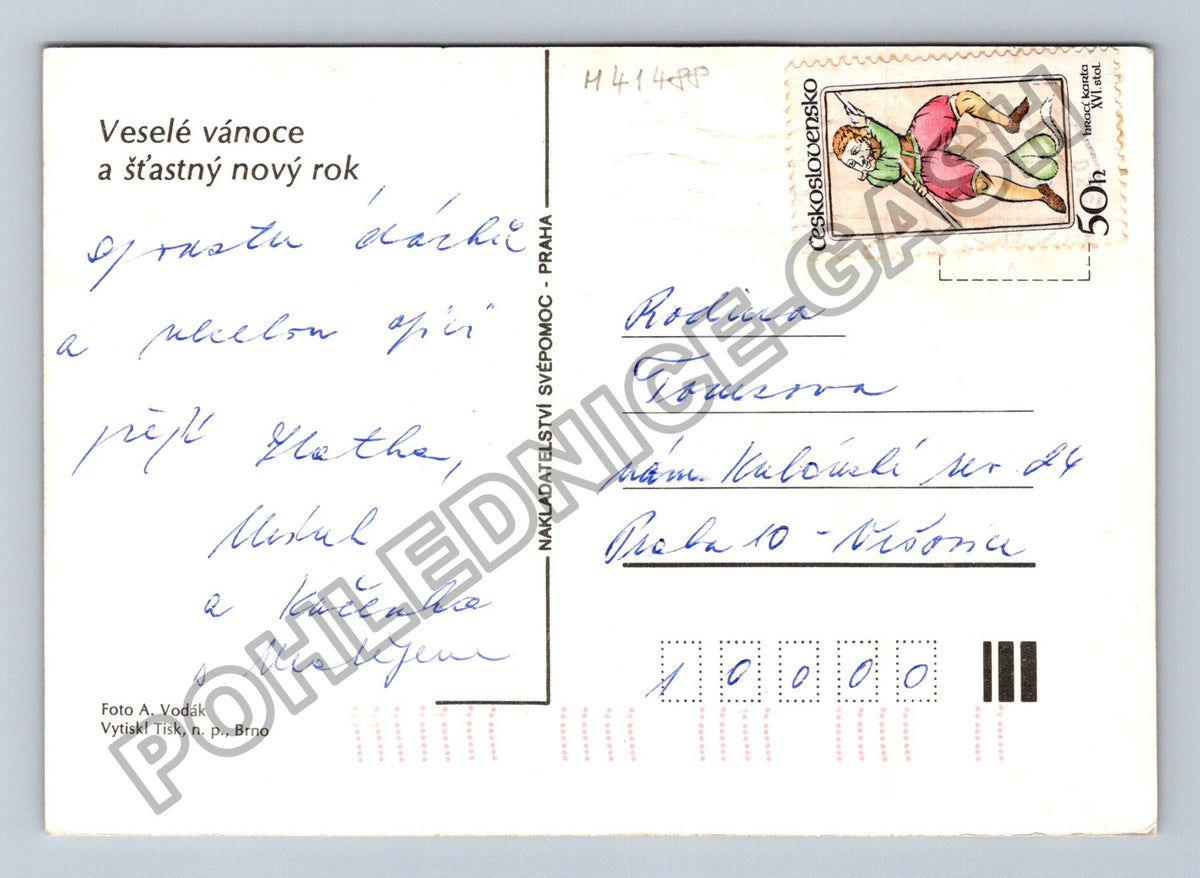 Veselé vánoce
a šťastný nový rok
spoustu dárků
a
přejí Zlatka,
a Kačenka
s
Foto A. Vodák
Vytiskl Tisk, n. p., Brno
NAKLADATELSTVÍ SVĚPOMOC - PRAHA
M 41488
Československo
hrací karta
XVI. stol.
50h
Rodina
nám. 24
Praha 10 - Vršovice
10000
POHLEDNICE-GASH